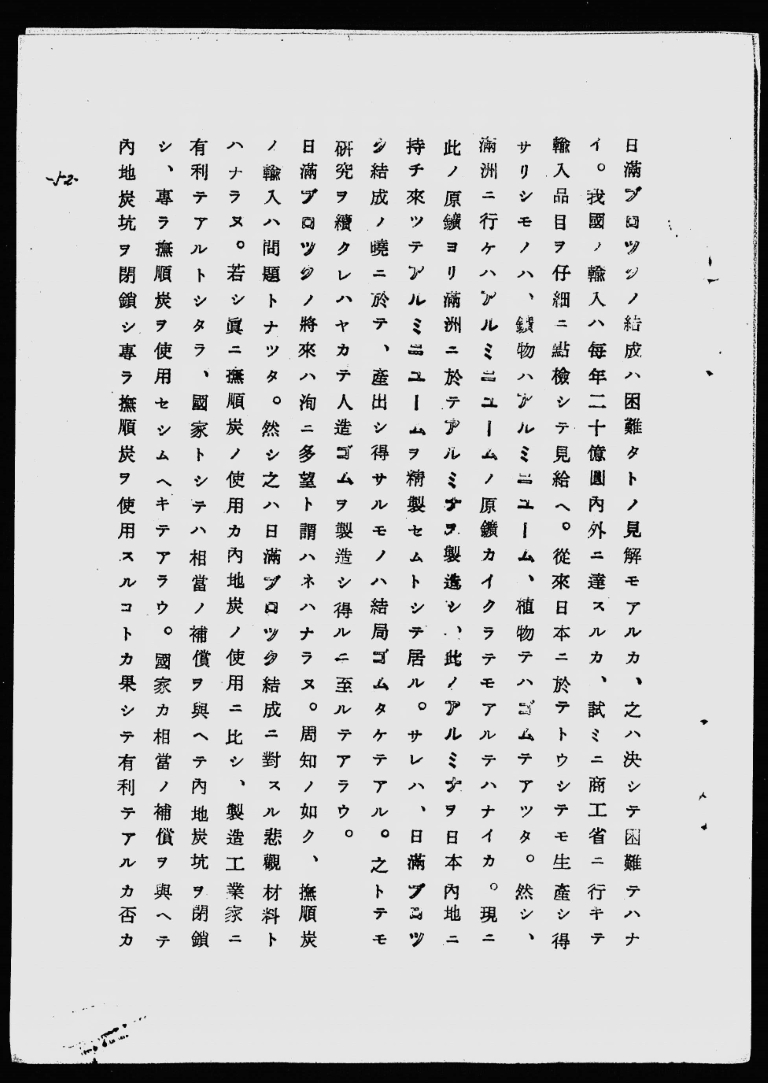 日滿ブロックノ結成ハ困難タトノ見解モアルカ、之ハ決シテ困難テハナ
イ。我國ノ輸入ハ每年二十億圓內外ニ達スルカ、試ミニ商工省ニ行キテ
輸入品目ヲ仔細ニ點檢シテ見給ヘ。從來日本ニ於テトウシテモ生產シ得
サリシモノハ、鑛物ハアルミニユーム、植物テハゴムテアツタ。然シ、
滿洲ニ行ケハアルミニユームノ原鑛カイクラテモアルテハナイカ。現ニ
此ノ原鑛ヨリ滿洲ニ於テアルミナヲ製造シ、此ノアルミナヲ日本內地ニ
持チ來ツテアルミニユームヲ精製セムトシテ居ル。サレハ、日滿ブロツ
ク結成ノ曉ニ於テ、產出シ得サルモノハ結局ゴムタケテアル。之トテモ
硏究ヲ續クレハヤカテ人造ゴムヲ製造シ得ルニ至ルテアラウ。
日滿ブロツクノ將來ハ洵ニ多望ト謂ハネハナラヌ。周知ノ如ク、撫順炭
ノ輸入ハ問題トナツタ。然シ之ハ日滿ブロツク結成ニ對スル悲觀材料ト
ハナラヌ。若シ眞ニ撫順炭ノ使用カ內地炭ノ使用ニ比シ、製造工業家ニ
有利テアルトシタラ、國家トシテハ相當ノ補償ヲ與ヘテ內地炭坑ヲ閉鎖
シ、專ラ撫順炭ヲ使用セシムヘキテアラウ。國家カ相當ノ補償ヲ與ヘテ
內地炭坑ヲ閉鎖シ專ラ撫順炭ヲ使用スルコトカ果シテ有利テアルカ否カ
-52-